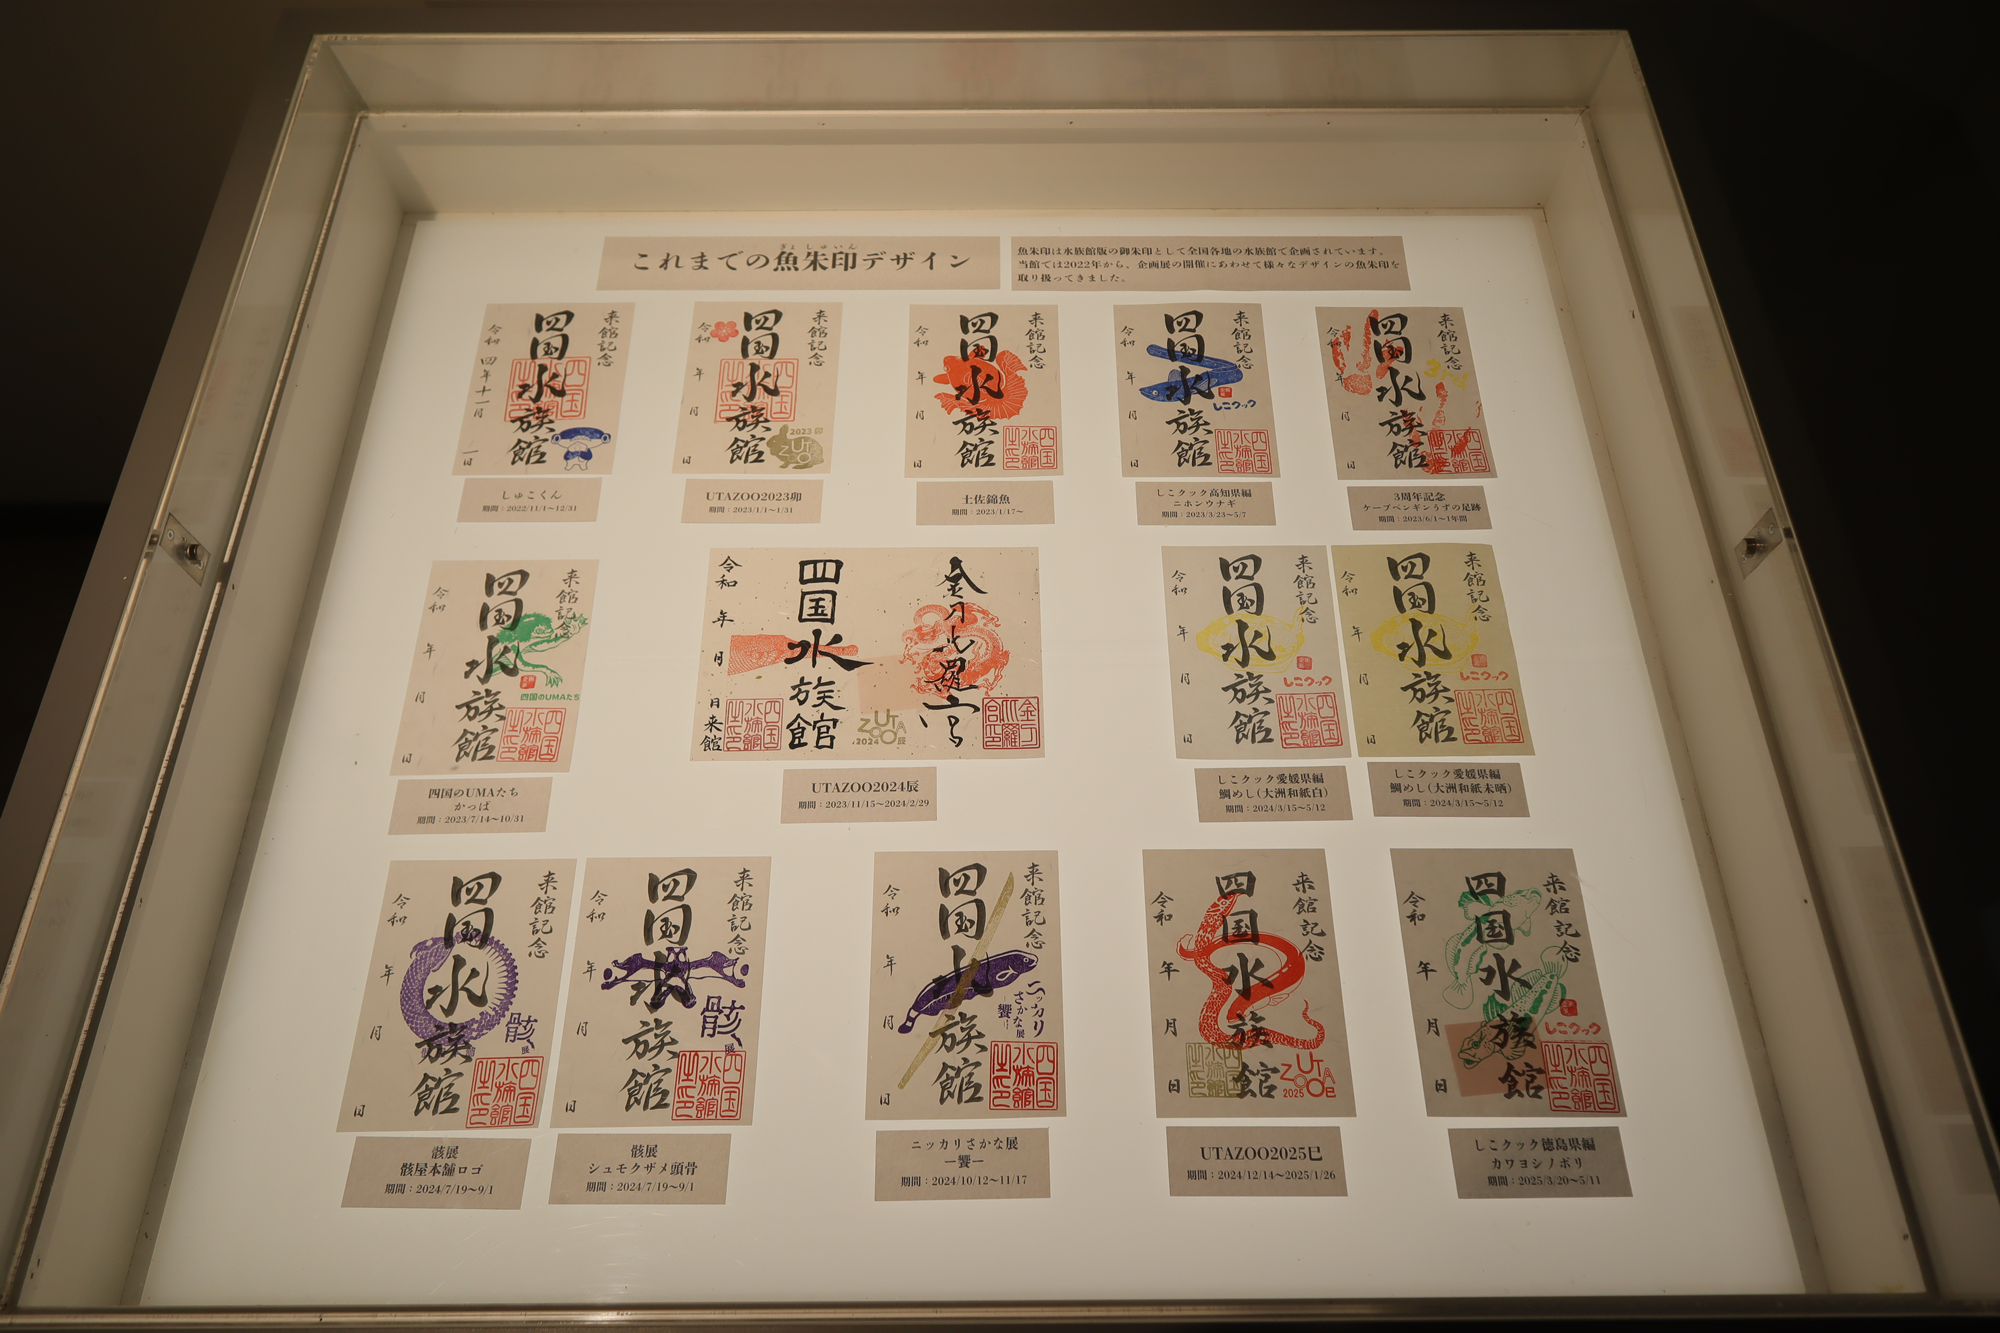 これまでの魚朱印デザイン
ぎょしゅいん
魚朱印は水族館版の御朱印として全国各地の水族館で企画されています。
当館では2022年から、企画展の開催にあわせて様々なデザインの魚朱印を
取り扱ってきました。
来館記念
四国水族館
令和四年十一月一日
しゅこくん
期間：2022/11/1～12/31
来館記念
四国水族館
令和 年 月 日
2023 卯
UTAZOO
UTAZOO2023卯
期間：2023/1/1～1/31
来館記念
四国水族館
令和 年 月 日
土佐錦魚
期間：2023/1/17～
来館記念
四国水族館
令和 年 月 日
しこクック
しこクック高知県編
ニホンウナギ
期間：2023/3/23～5/7
来館記念
四国水族館
令和 年 月 日
3rd
3周年記念
ケープペンギンうずの足跡
期間：2023/6/1～1年間
来館記念
四国水族館
令和 年 月 日
四国のUMAたち
四国のUMAたち
かっぱ
期間：2023/7/14～10/31
金刀比羅宮
四国水族館
令和 年 月 日来館
UTAZOO展
2024
UTAZOO2024辰
期間：2023/11/15～2024/2/29
来館記念
四国水族館
令和 年 月 日
しこクック
しこクック愛媛県編
鯛めし(大洲和紙白)
期間：2024/3/15～5/12
来館記念
四国水族館
令和 年 月 日
しこクック
しこクック愛媛県編
鯛めし(大洲和紙未晒)
期間：2024/3/15～5/12
来館記念
四国水族館
令和 年 月 日
骸展
骸展
骸屋本舗ロゴ
期間：2024/7/19～9/1
来館記念
四国水族館
令和 年 月 日
骸展
骸展
シュモクザメ頭骨
期間：2024/7/19～9/1
来館記念
四国水族館
令和 年 月 日
ニッカリさかな展
―饗―
ニッカリさかな展
―饗―
期間：2024/10/12～11/17
来館記念
四国水族館
令和 年 月 日
UTAZOO巳
2025
UTAZOO2025巳
期間：2024/12/14～2025/1/26
来館記念
四国水族館
令和 年 月 日
しこクック
しこクック徳島県編
カワヨシノボリ
期間：2025/3/20～5/11